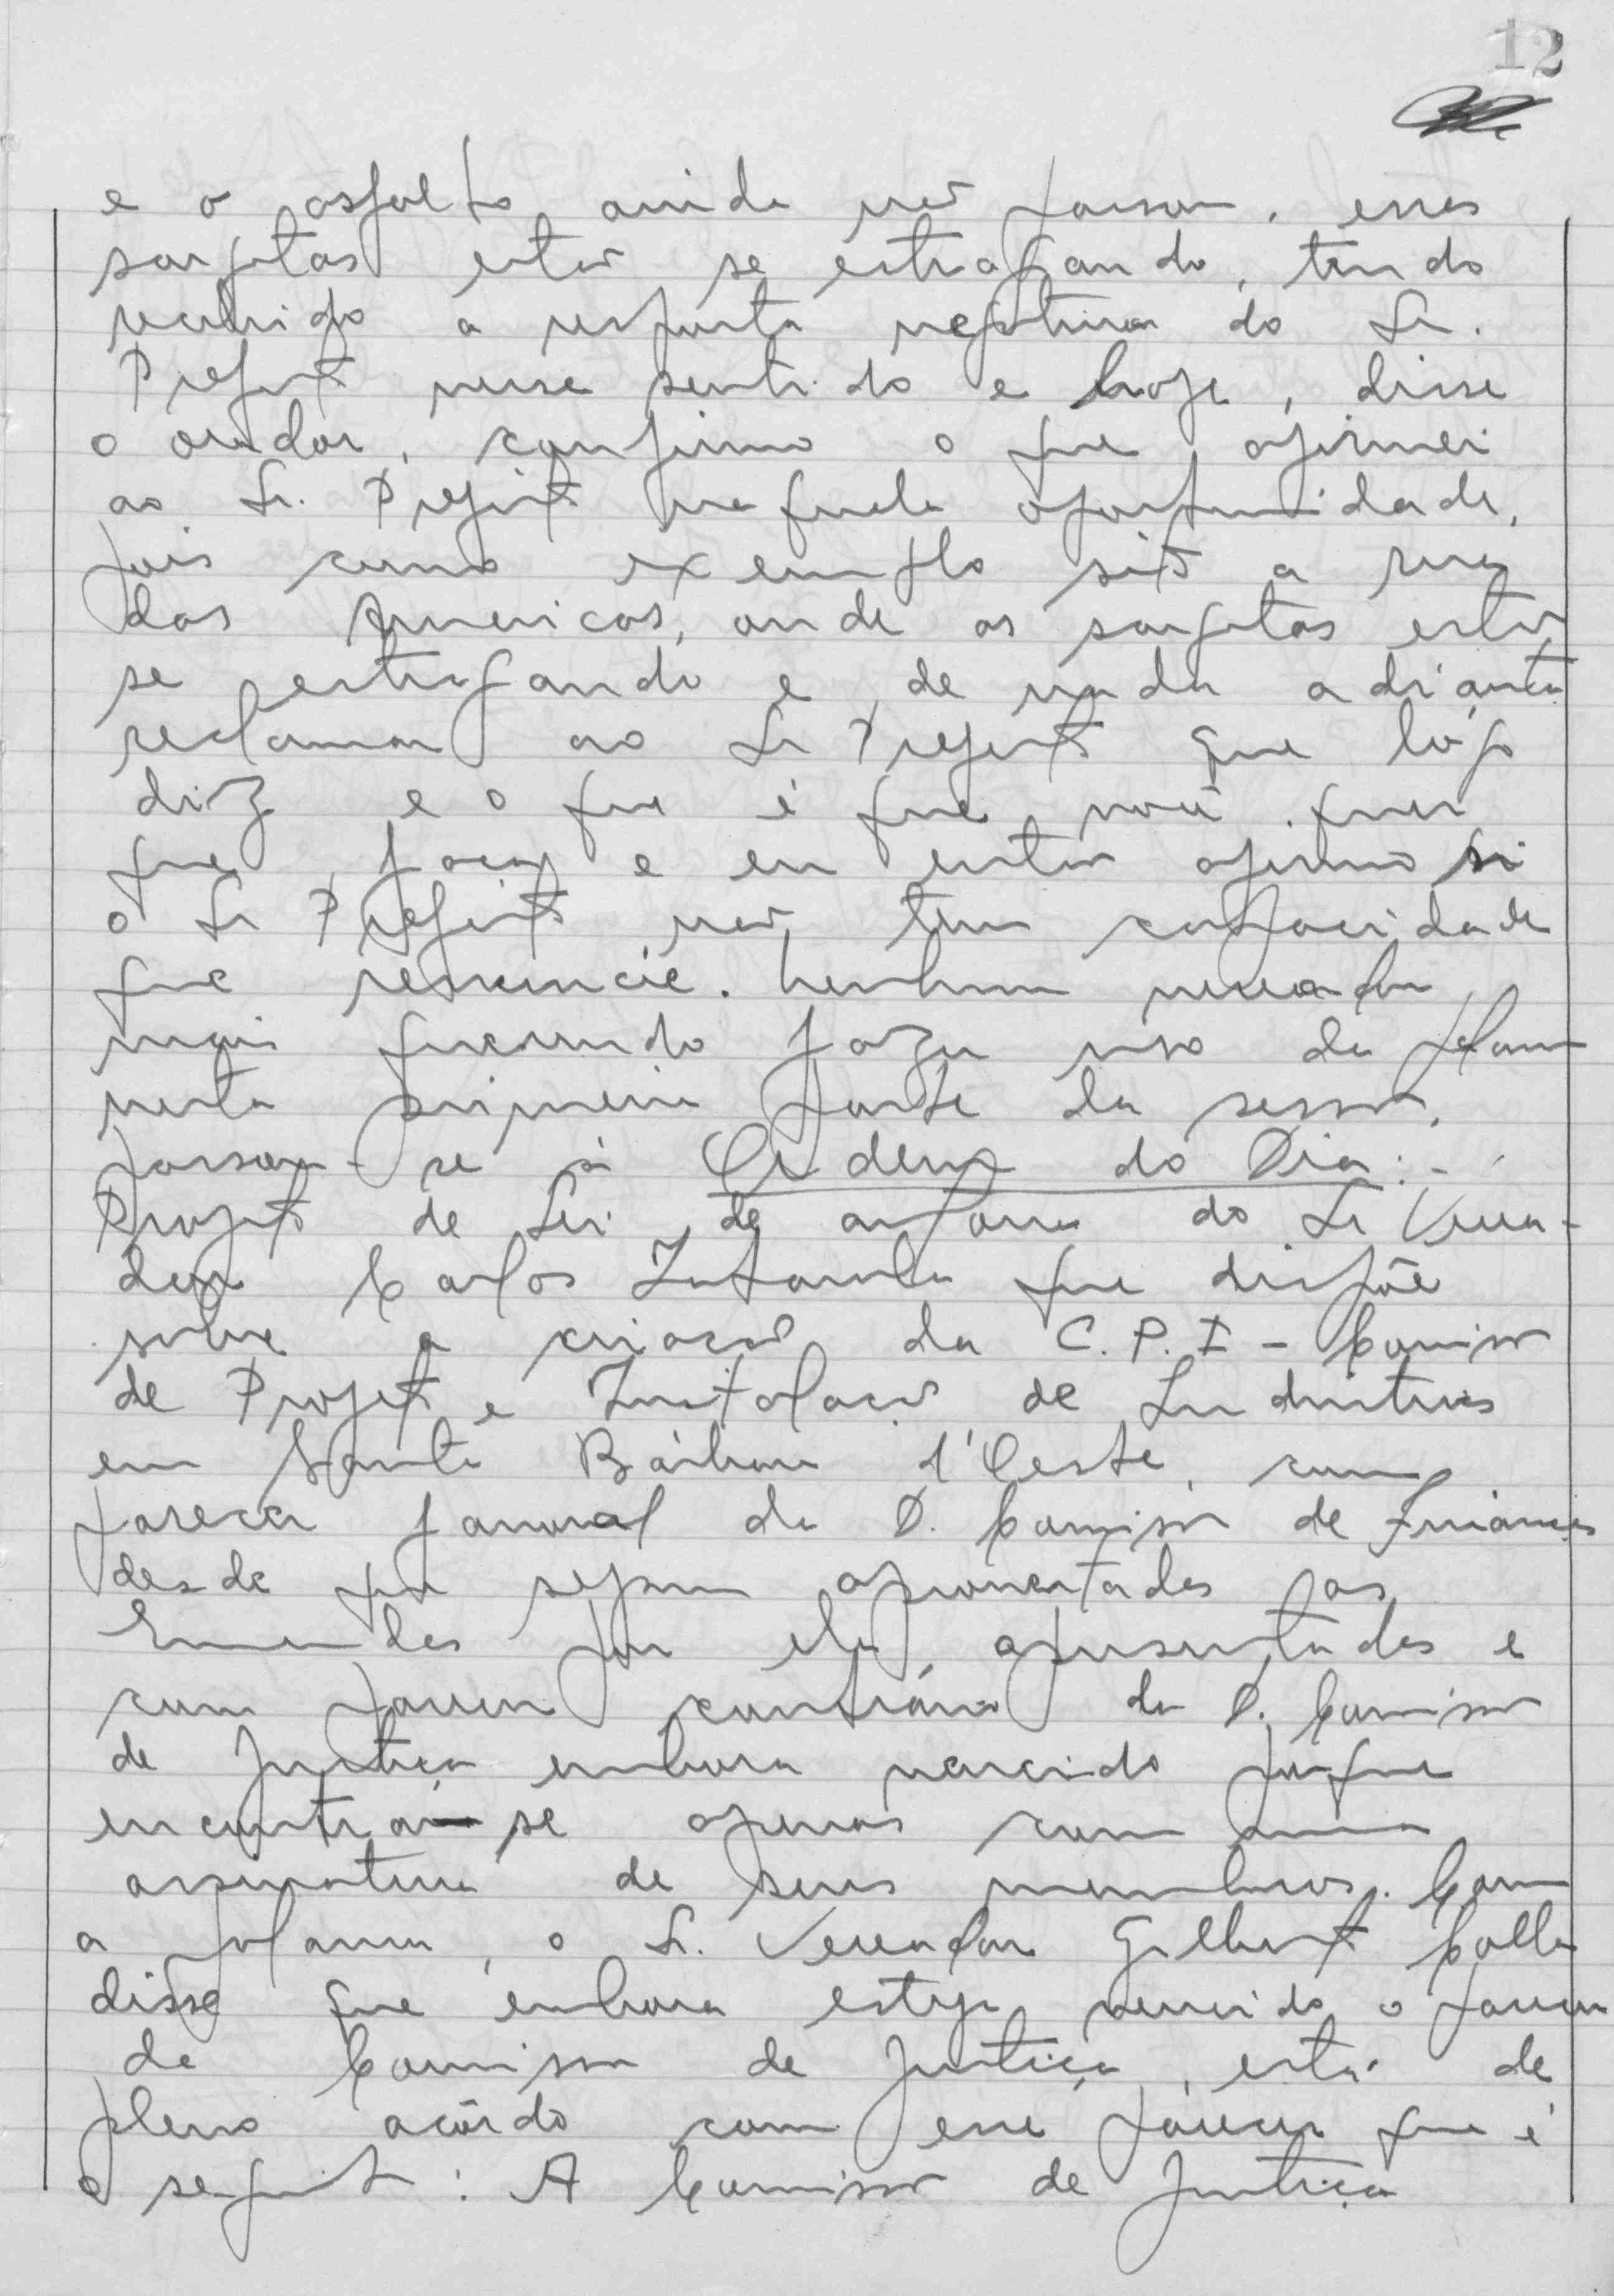 12
e o asfalto ainda não passou, essas
sarjetas estão se estragando, tendo
recebido a resposta negativa do Sr.
Prefeito nesse sentido e hoje, disse
o orador, confirmo o que afirmei
ao Sr. Prefeito naquela oportunidade,
pois como exemplo cito a rua
das Americas, onde as sarjetas estão
se estragando e de nada adianta
reclamar ao Sr Prefeito que lógo
diz e o que é que você quer
que faça e eu então afirmo si
o Sr Prefeito não tem capacidade
que renuncie. Nenhum vereador
mais querendo fazer uso da palavra
nesta primeira parte da sessão,
passou-se à Ordem do Dia:-
Projeto de Lei de autoria do Sr Verea-
dor Carlos que dispõe
sobre a criação da C.P.I - Comissão
de Projeto e Instalação de Industrias
em Santa Bárbara d'Oeste, com
parecer favoravel da D. Comissão de Finanças
desde que sejam acrescentadas as
Emendas por ela apresentadas e
com parecer contrário da D. Comissão
de Justiça embora vencido porque
encontra-se apenas com uma
assinatura de seus membros. Com
a palavra, o Sr. Vereador Gilberto
disse que embora esteja vencido o parecer
da Comissão de Justiça, está de
pleno acôrdo com esse parecer que é
o seguinte: A Comissão de Justiça